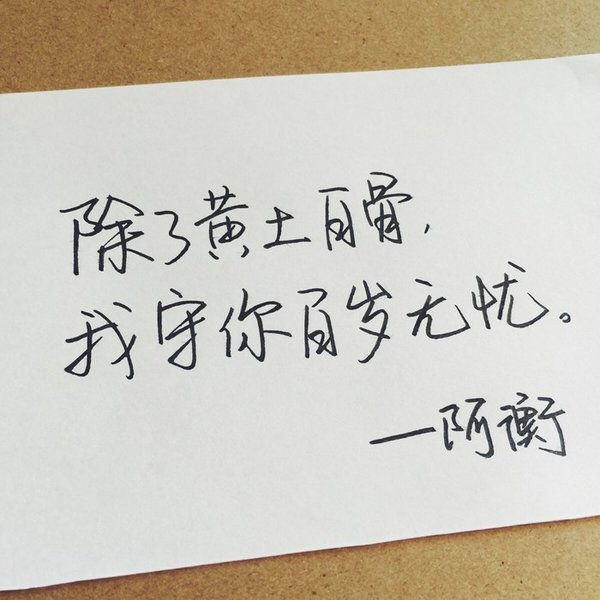 除了黄土白骨，
我守你百岁无忧。
—阿衡